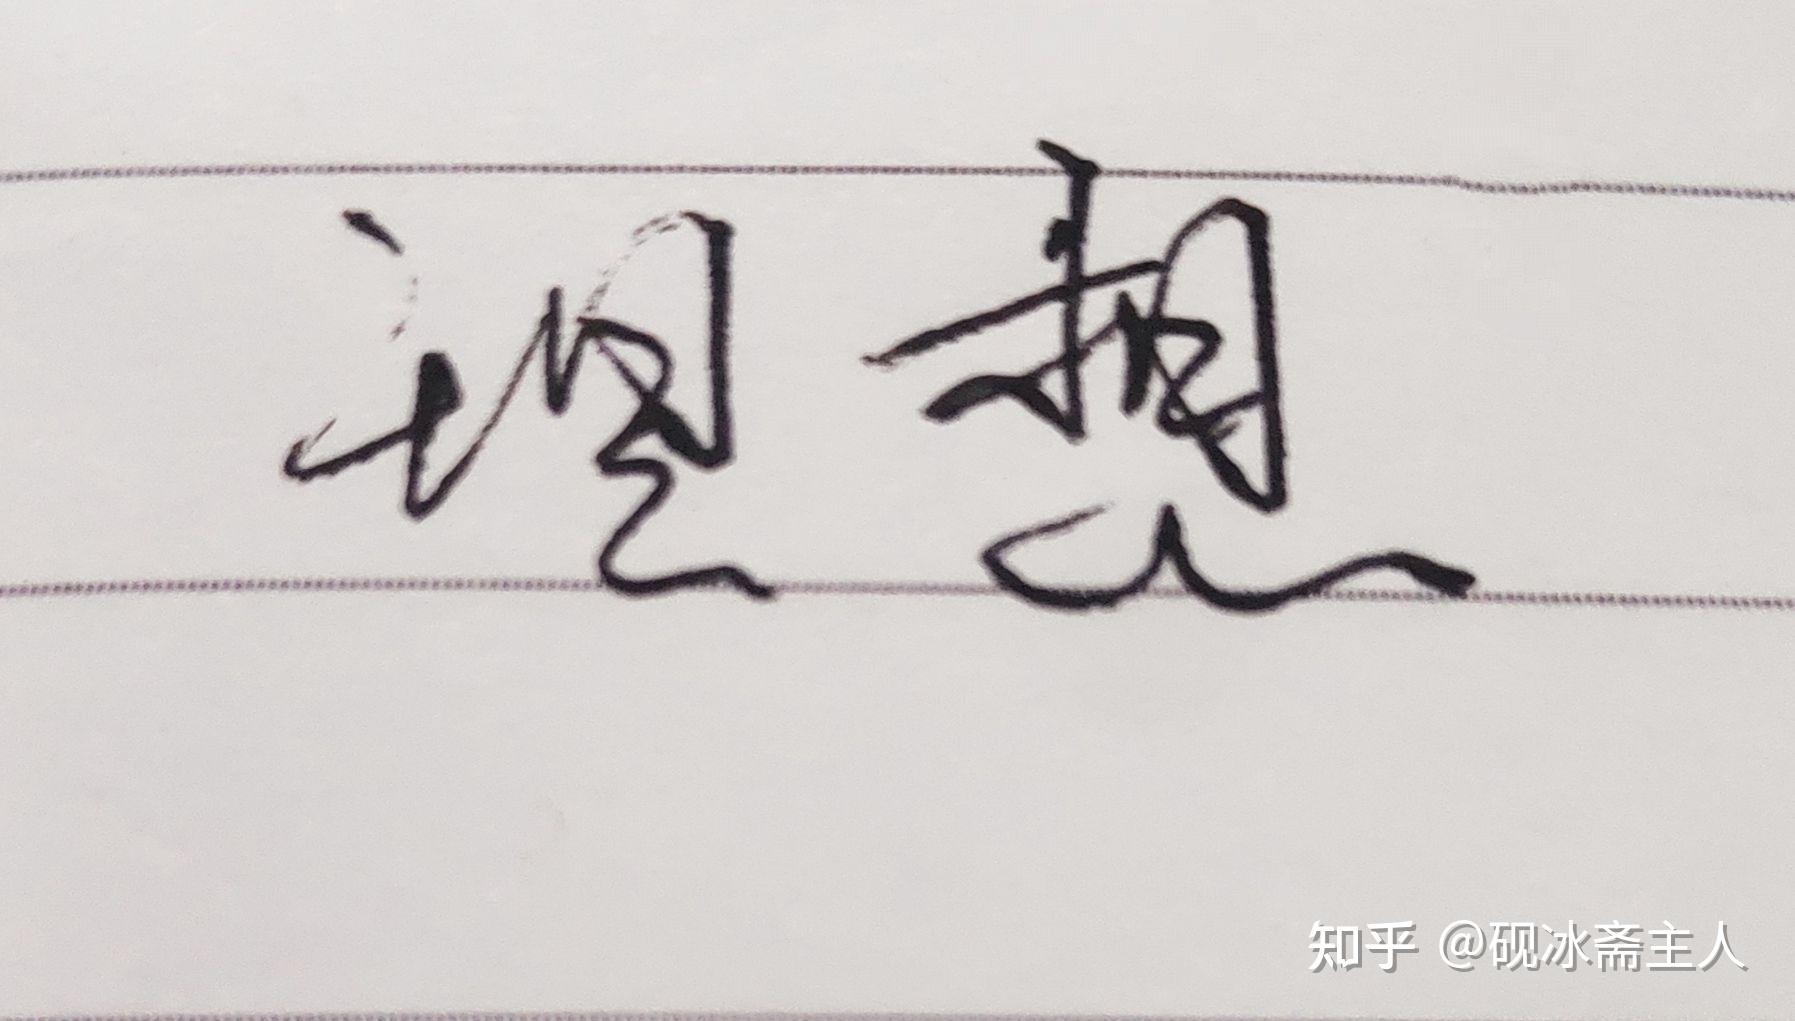 理想
知乎 @砚冰斋主人